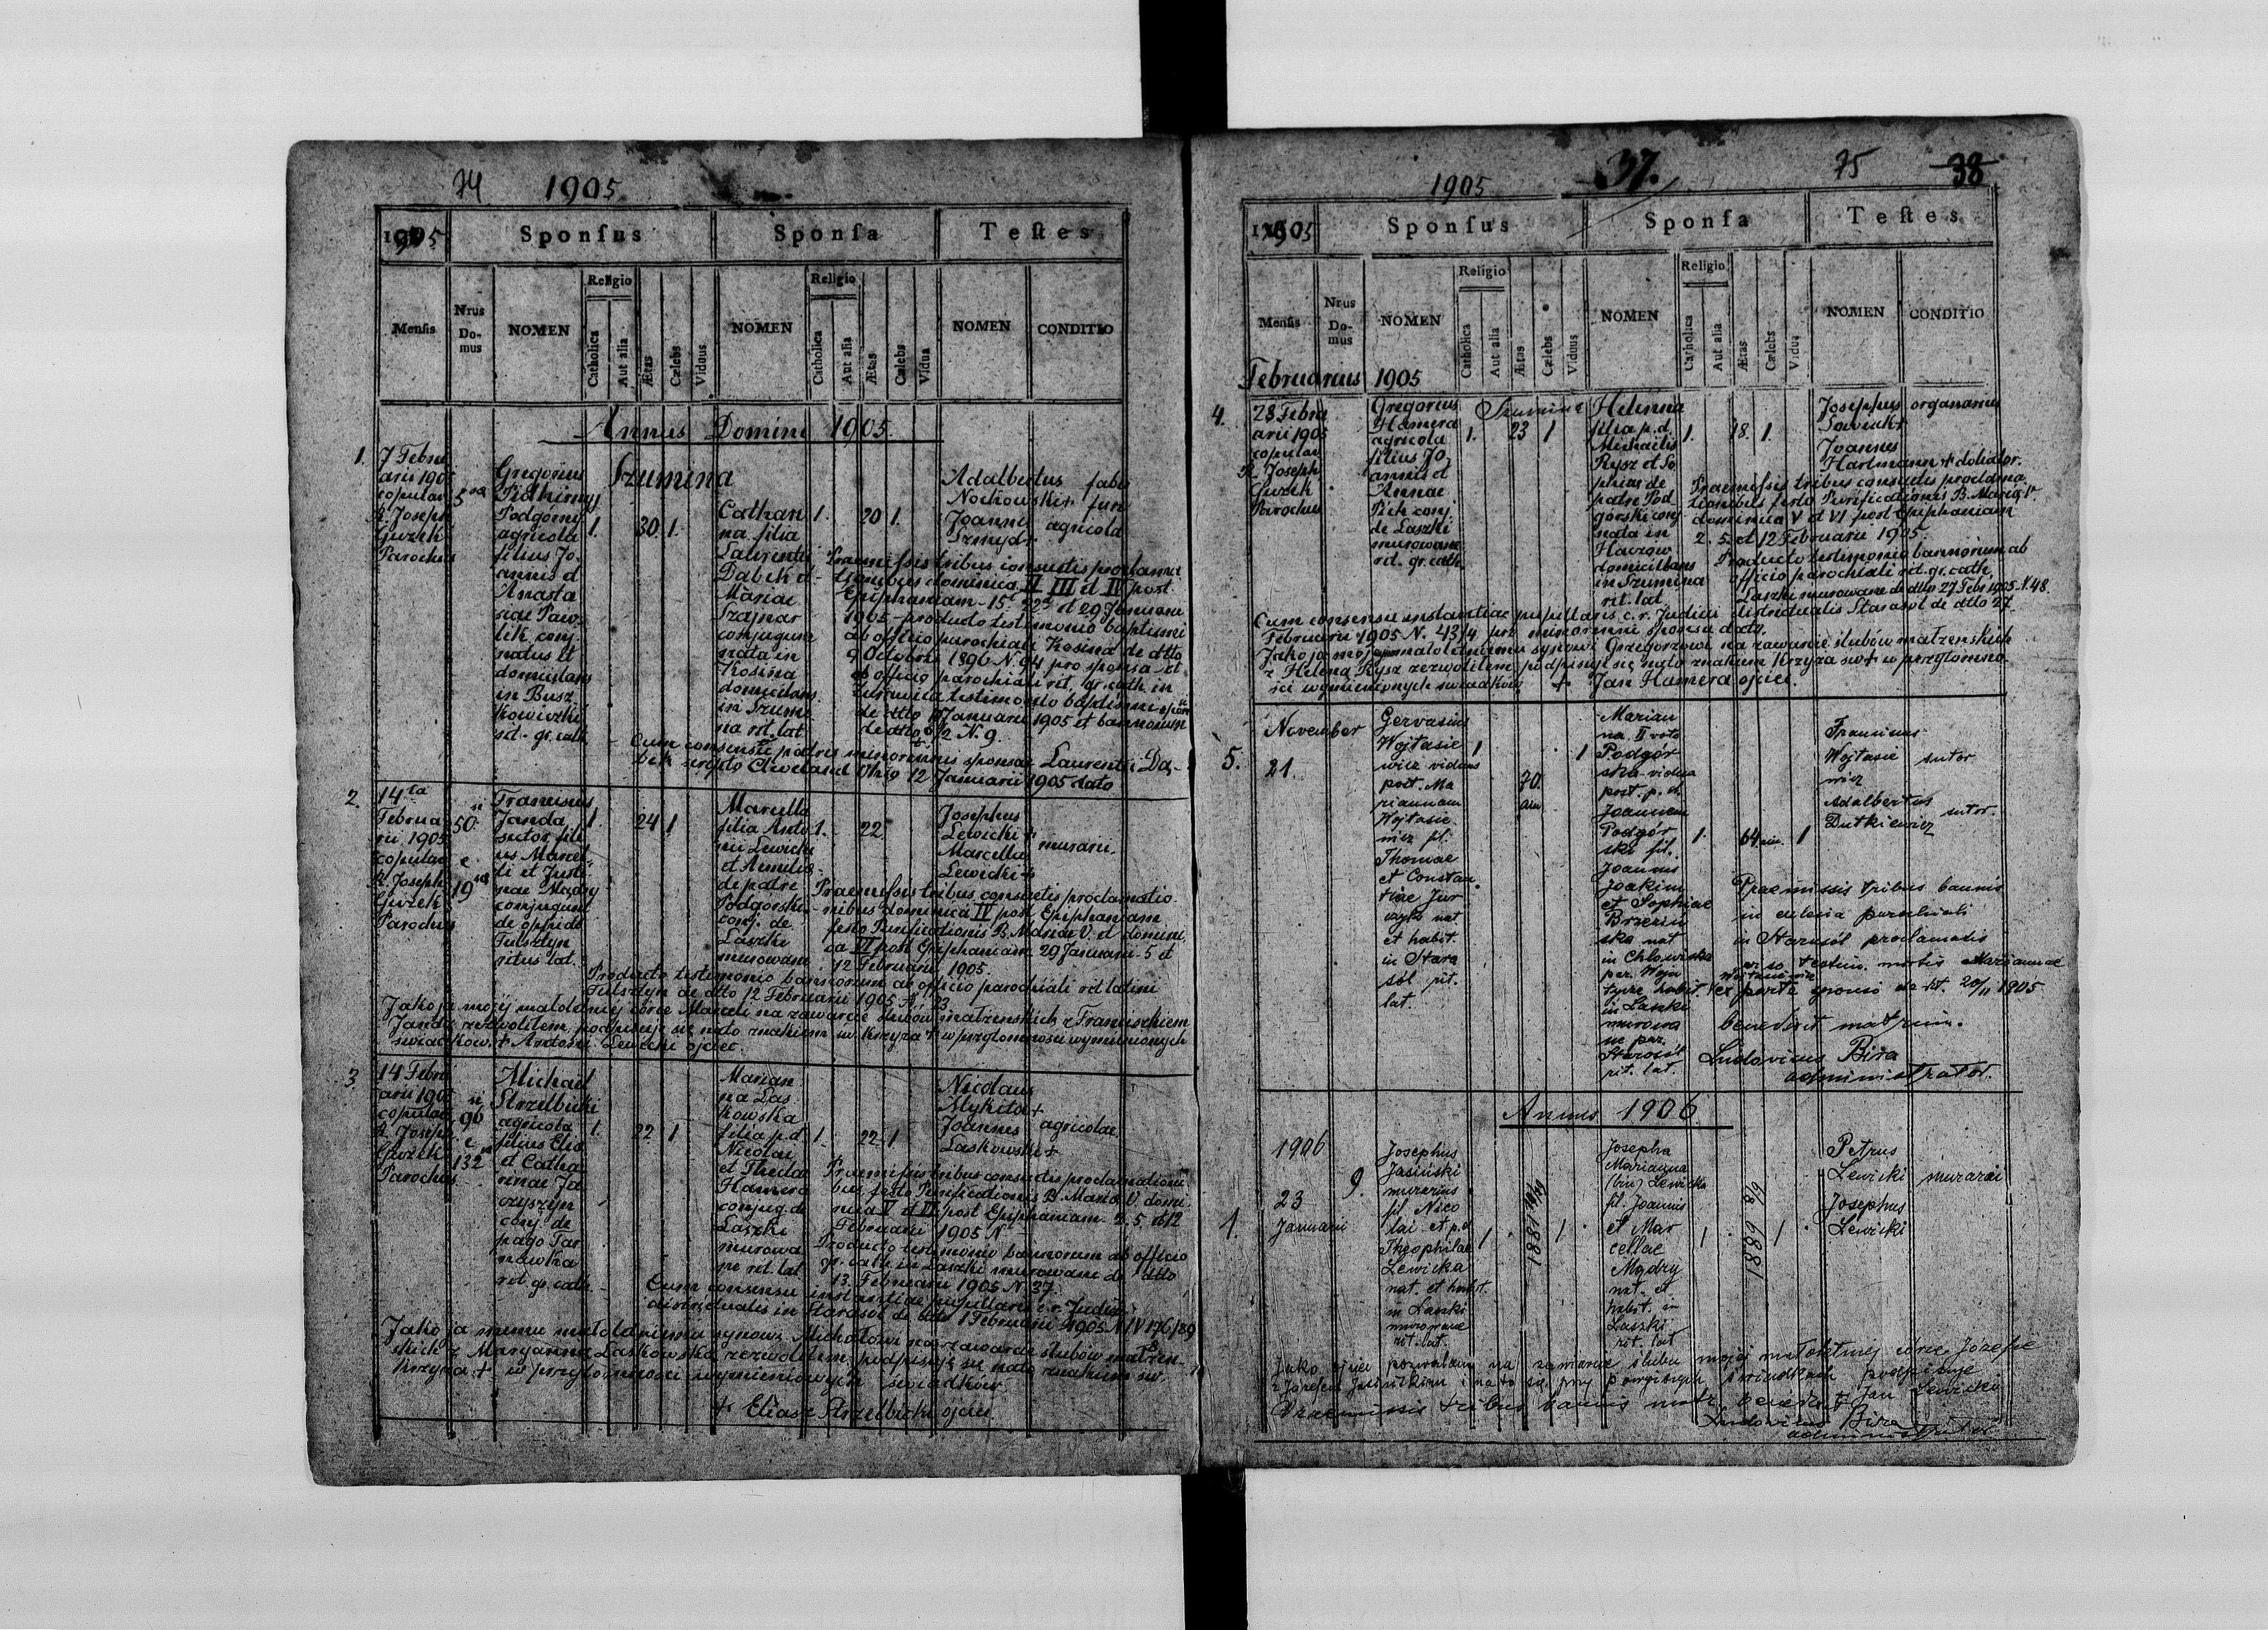 74 1905
1905 Sponſus Sponſa Teſtes
Menſis Nrus Do- mus NOMEN Religio Catholica Aut alia Ætas Cælebs Viduus NOMEN Religio Catholica Aut alia Ætas Cælebs Vidua NOMEN CONDITIO
Annus Domini 1905.
1.
7 Febru
arii 1905
copulav
R. Joseph
Guzek
Parochus
5
Gregorius
Pidhirnyj
Podgórny
agricola
filius Jo-
annis et
Anasta
siae Paw-
lik conj.
natus et
domicilians
in Busz
kowiczki
rit. gr. cath.
Szumina
1. 30 1.
Cathari
na filia
Laurentii
Dąbek et
Mariae
Szajnar
conjugum
nata in
Kosina
domicilians
in Szumi
na rit. lat.
1. 20 1.
Adalbertus
Nockowski
Joannes
Szmyd
faber
agricola
Praemissis tribus consuetis proclama
tionibus dominica II III et IV post
Epiphaniam - 15 22 et 29 Januarii
1905 - producto testimonio baptismi
ab officio parochiali Kosina de dtto
9 Octobris 1896 N. 94 pro sponsa et
ab officio parochiali rit. gr. cath. in
testimonio baptismi
de dtto Januarii 1905 et bannorum
de dtto 6/2 N. 9.
Cum consensu patris minorennis sponsae Laurentii Dą-
bek scripto Cleveland Ohio 12 Januarii 1905 dato
2.
14ta
Februa
rii 1905
copulav
R. Joseph
Guzek
Parochus
50
19
Franciscus
Janda
sutor fili
us Marcel-
li et Justi-
nae Mądry
conjugum
de oppido
Fulsztyn
ritus lat.
1. 24 1
Marcella
filia Anto
nii Lewicki
et Aemilia
de patre
Podgorski
conj. de
Laszki
murowane
1. 22
Josephus
Lewicki +
Marcellus
Lewicki +
murarii.
Praemissis tribus consuetis proclamatio
nibus dominica IV post Epiphaniam
festo Purificationis B. Mariae V. et domini
ca VI post Epiphaniam 29 Januarii 5 et
12 Februarii 1905.
Producto testimonio bannorum ab officio parochiali rit latini
Fulsztyn de dtto 12 Februarii 1905 N. 23
Jako ja mojéj małoletniéj córce Marceli na zawarcie ślubów małżenskich z Franciszkiem
Janda zezwolitem, podpisuję się nato znakiem św Krzyża + w przytomności wymienionych
świadków. + Antoni Lewicki ojciec.
3.
14 Febru
arii 1905
copulav
R. Joseph
Guzek
Parochus
96
132
Michael
Strzelbicki
agricola
filius Elia
et Catha
rinae Ja
czyszyn
conj. de
pago Tar
nawka
rit. gr. cath.
1. 22 1
Marian
na Las
kowska
filia p.d.
Nicolai
et Thecla
Hamera
conjug. de
Laszki
murowa
ne rit. lat.
1. 22 1
Nicolaus
Mykita +
Joannes
Laskowski +
agricolae
Praemissis tribus consuetis proclamationi
bus festo Purificationis B. Mariae V. domi
nica V et VI post Epiphaniam 2. 5 et 12
Februarii 1905 N
Producto testimonio bannorum ab officio
gr. cath. in Laszki murowane de dtto
13. Februarii 1905 N. 37.
Cum consensu instantiae pupillaris c. r. Judicii
districtualis in Starasol de dtto 1 Februarii 1905 N. IV 176/89
Jako ja memu małoletniemu synowi Michałowi na zawarcie ślubów małżen-
skich z Maryanną Laskowską zezwolitem, podpisuję się nato znakiem św.
krzyża + w przytomności wymienionych świadków
+ Eliasz Strzelbicki ojciec.
1905 37. 75 38
1905 Sponſus Sponſa Teſtes
Menſis Nrus Do- mus NOMEN Religio Catholica Aut alia Ætas Cælebs Viduus NOMEN Religio Catholica Aut alia Ætas Cælebs Vidua NOMEN CONDITIO
Februarius 1905
4.
28 Febru
arii 1905
copulav
R. Joseph
Guzek
Parochus
Gregorius
Hamera
agricola
filius Jo
annis et
Annae
Pich conj
de Laszki
murowane
rit. gr. cath.
Szumina
1. 23 1
Helenna
filia p.d.
Michaelis
Rysz et So
phiae de
patre Pod
górski conj
nata in
domicilians
in Szumina
rit. lat.
1. 18. 1.
Josephus
Sawicki +
Joannes
Hartmann +
organarius
doliator.
Praemissis tribus consuetis proclama
tionibus festo Purificationis B. Mariae V.
dominica V et VI post Epiphaniam
2. 5. et 12 Februarii 1905.
Producto testimonio bannorum ab
officio parochiali rit. gr. cath.
Laszki murowane de dtto 27 Febr. 1905. N. 48.
Cum consensu instantiae pupillaris c. r. Judicii districtualis Starasol de dtto 27.
Februarii 1905 N. 43/4 pro minorenni sponsa dato.
Jako ja mojemu małoletniemu synowi Grzegorzowi na zawarcie ślubów małżenskich
z Heleną Rysz zezwolitem, podpisuję się nato znakiem Krzyża św + w przytomno
ści wymienionych świadków + Jan Hamera ojciec.
5.
November
21.
Gervasius
Wojtasie
wicz viduus
post. Ma
riannam
Wojtasie
wicz fil.
Thomae
et Constan
tiae Jur
czyk nat
et habit.
in Stara
sól rit.
lat.
1 70. ann 1
Marian
na II voto
Podgór
ska vidua
post. p. d.
Joannem
Podgór
ski fil.
Joannis
Joakim
et Sophiae
Brzezin
ska nat
in Chlowiska
par. Woju
tycze habit.
in Laszki
murowa
ne par.
Starasól
rit. lat.
1. 64 ann. 1
Franciscus
Wojtasie
wicz
Adalbertus
Dutkiewicz
sutor
sutor.
Praemissis tribus bannis
in ecclesia parochiali
in Starasól proclamatis
testim. mortis Mariannae
Wojtasiewicz
ex parte sponsi de dt. 20/11 1905
benedixit matrim.
Ludovicus Bira
administrator.
Annus 1906
1.
1906
23
Januarii
9.
Josephus
Jasiński
murarius
fil. Nico
lai et p.d
Theophilae
Lewicka
nat. et habit.
in Laszki
murowane
rit. lat.
1 1881 1
Josepha
Marianna
(bin) Lewicka
fil. Joannis
et Mar
cellae
Mądry
nat. et
habit. in
Laszki
rit. lat
1 1889 1
Petrus
Lewicki
Josephus
Lewicki
murarii
Jako ojciec pozwalam na zawarcie ślubu mojéj małoletniej córce Józefie
z Józefem Jasińskim i na to się przy powyższych świadkach podpisuje
Praemissis tribus bannis matr. benedixit Jan Lewicki
Ludovicus Bira
administrator